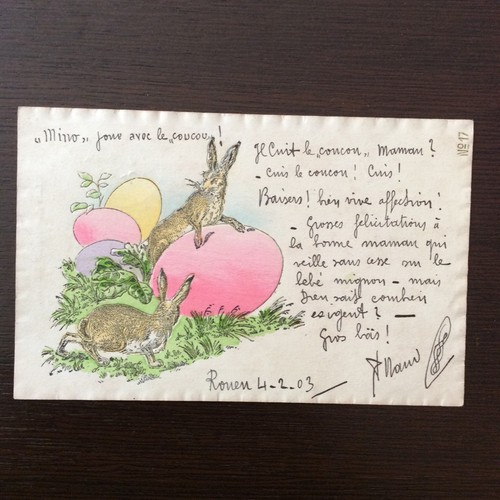 „Mino„ joue avec le „coucou„ !
Il Cuit le „coucou„ Maman ?
- cuis le coucou ! Cuis !
Baisers ! bien vive affection !
- Grosses felicitations à
la bonne maman qui
veille sans cesse sur le
bébé mignon - mais
Dieu sait combien
exigent ? -
Gros bäs !
Rouen 4-2.03
No. 17